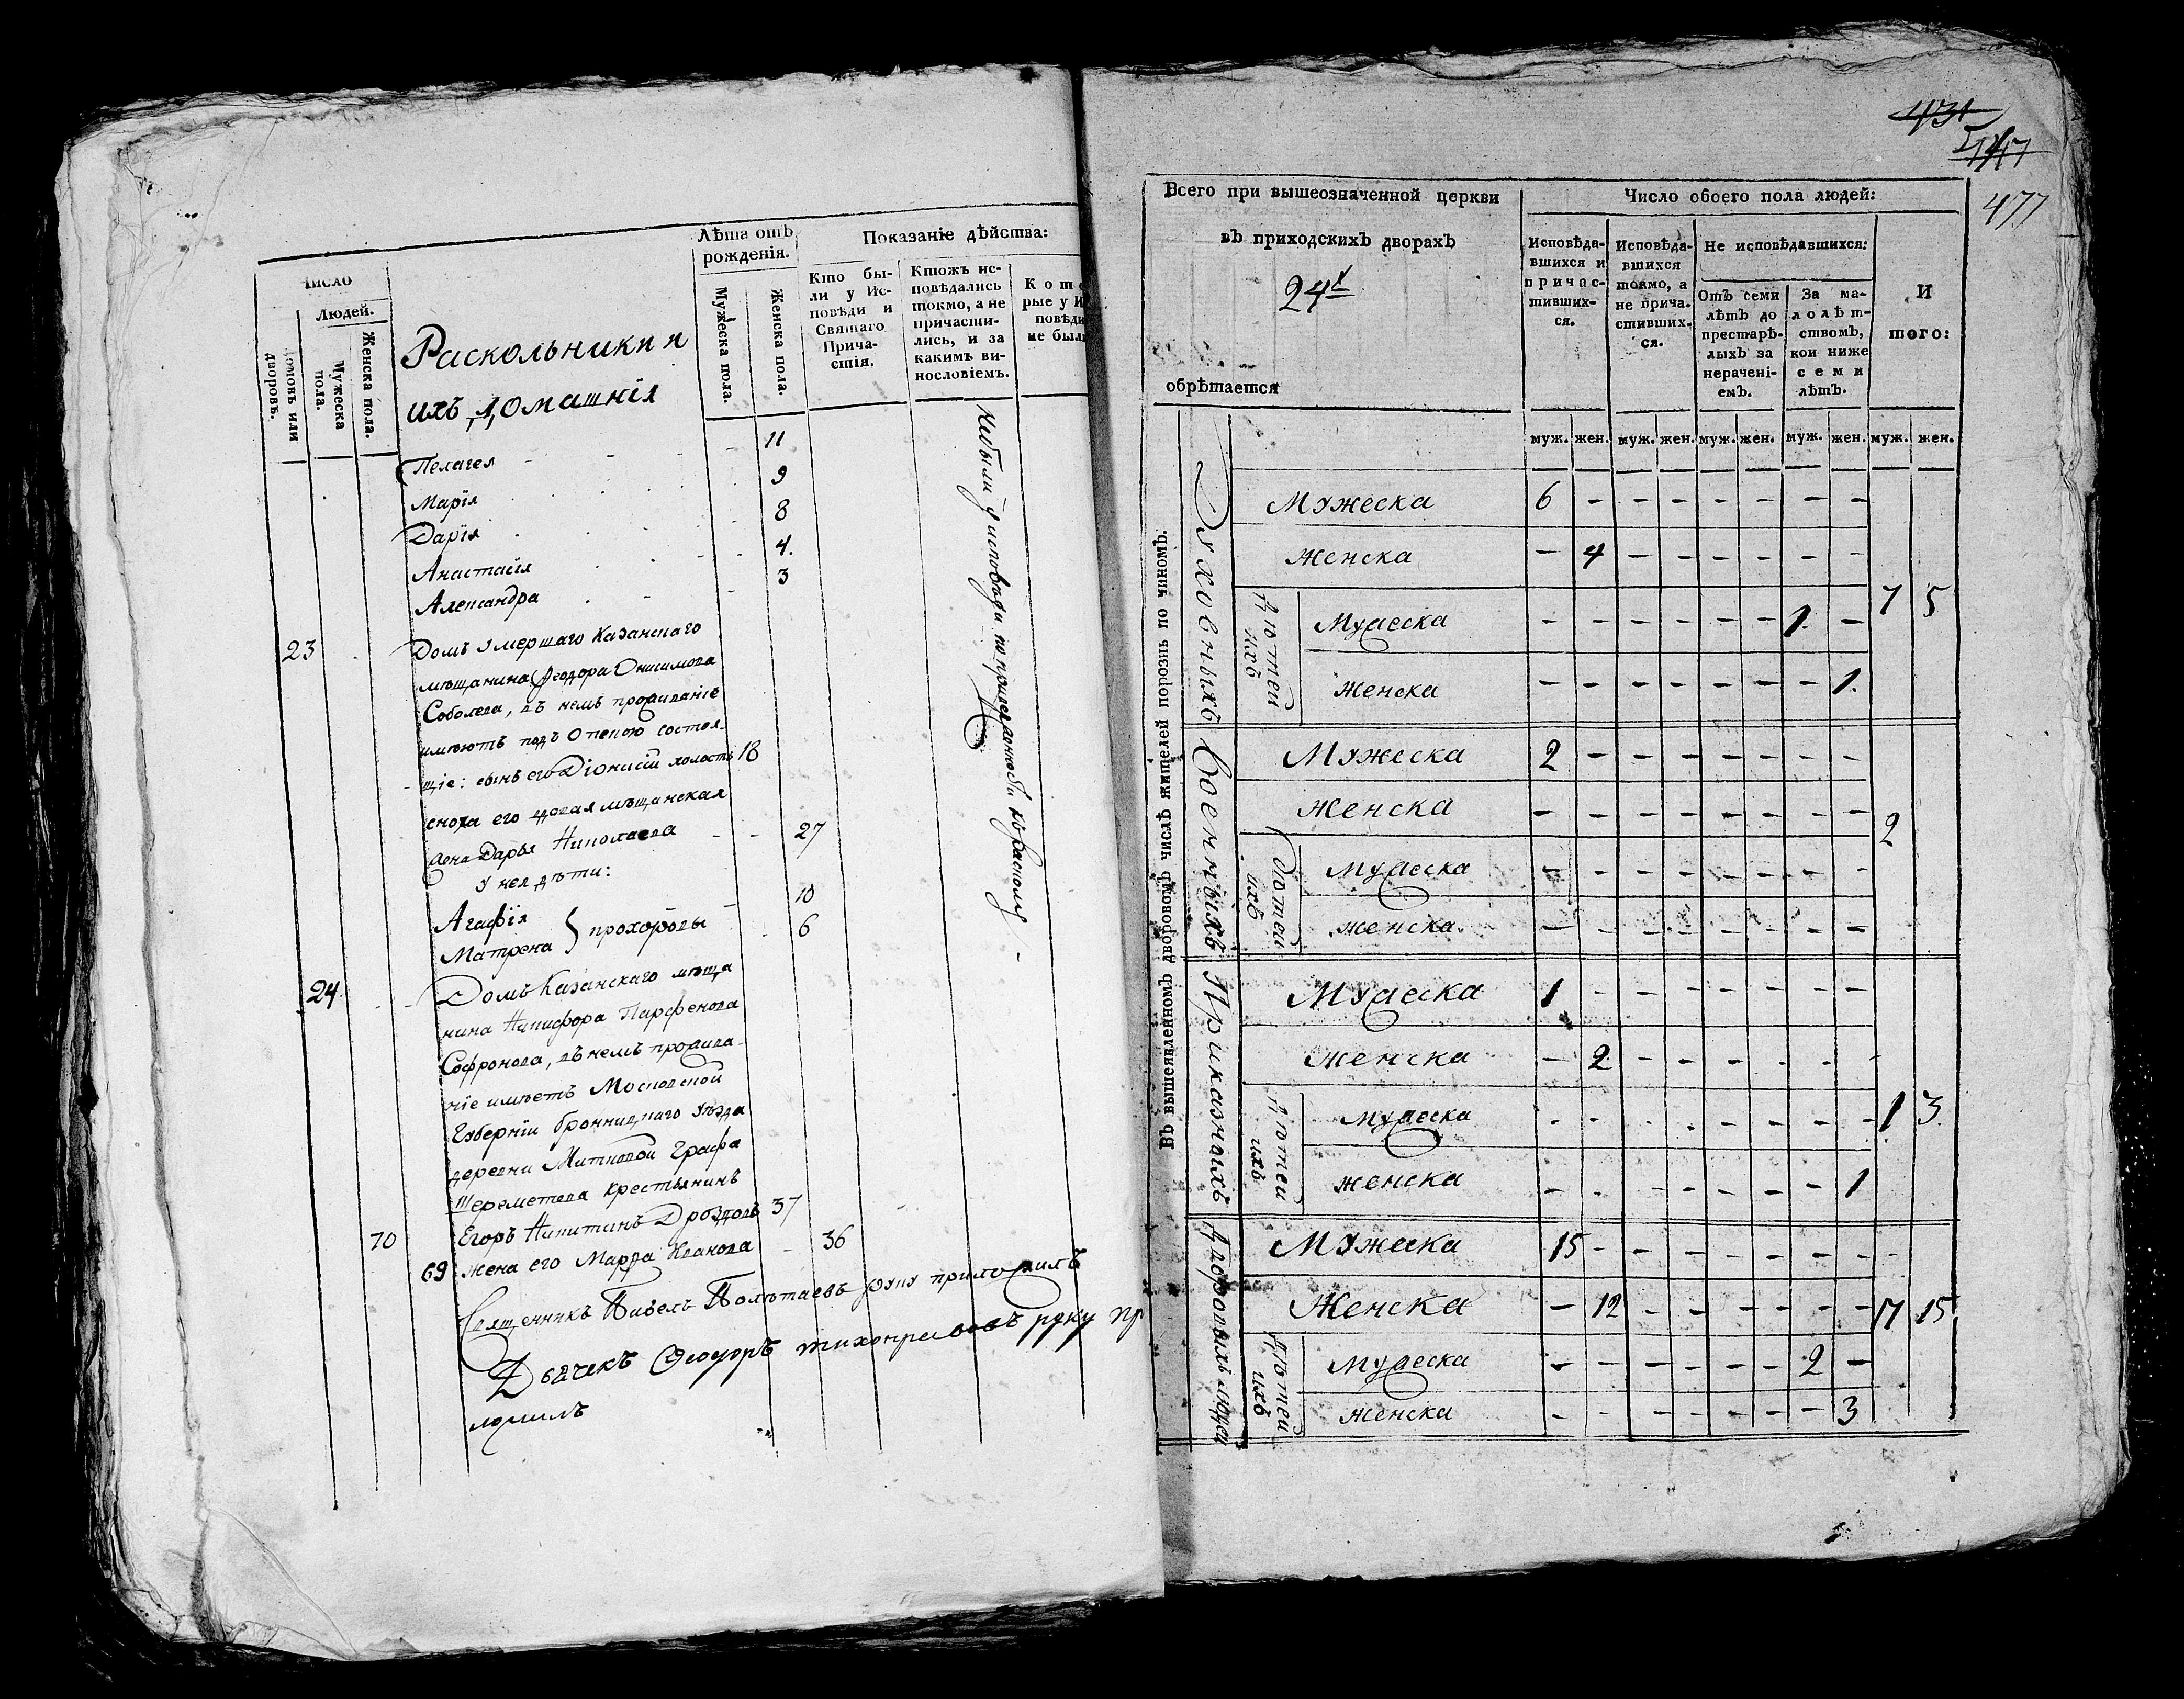 Число
Людей.
Домовъ или дворовъ.
Мужеска пола.
Женска пола.
Раскольники и
ихъ домашнія
Лѣта отъ рожденія.
Мужеска пола.
Женска пола.
Показаніе дѣйства:
Кто бы-
ли у Ис-
повѣди и
Святаго
Прича-
стія.
Ктожъ ис-
повѣдались
токмо, а не
причасти-
лись, и за
какимъ ви-
нословіемъ.
Кото
рые у И
повѣди
не был
Пелагея - - - - 11
Марія 9
Дарія 8
Анастасія - - 4.
Александра - - 3
23 Домъ умершаго Казанскаго
мѣщанина Ѳеодора Онисимова
Соболева, въ немъ проживаніе
имѣютъ подъ опекою состоя-
щіе: сынъ его Діонисій холостъ 18
сноха его вдовая мѣщанская
жена Дарья Николаева - - 27
У нея дѣти:
Агафія 10
Матрена } прохоровы 6
24 Домъ Казанскаго мѣща
нина Никифора Парфенова
Софронова, въ немъ прожива-
ніе имѣетъ Московской
Губерніи бронницкаго уѣзда
деревни Митковой Графа
Шереметева крестьянинъ
70 Егоръ Никитинъ Дроздовъ 37
69 жена его Марфа Иванова - 36
небыли у исповѣди по приверженности къ расколу
Священникъ Павелъ Полѣтаевъ руку приложилъ
Дьячекъ Ѳеодоръ тихонравовъ руку при
ложилъ
431
477
Всего при вышеозначенной церкви
въ приходскихъ дворахъ
24х
обрѣтается
Число обоего пола людей:
Исповѣда-
вшихся и
причас-
тивших-
ся.
Исповѣда-
вшихся
токмо, а
не прича-
стивших-
ся.
Не исповѣдавшихся:
Отъ семи
лѣтъ до
престарѣ-
лыхъ за
нераченi-
емъ.
За ма-
лолѣт-
ствомъ,
кои ниже
семи
лѣтъ.
И
того:
муж. жен. муж. жен. муж. жен. муж. жен. муж. жен.
Въ вышеявленномъ дворовомъ числѣ жителей порознь по чиномъ.
Духовныхъ
Мужеска 6 - - - - - - -
Женска - 4 - - - - - -
Дѣтей ихъ
Мужеска - - - - - - 1 -
Женска - - - - - - - 1.
7 5
Военныхъ
Мужеска 2 - - - - - - -
Женска - - - - - - - -
Дѣтей ихъ
Мужеска - - - - - - - -
Женска - - - - - - - -
2
Приказныхъ
Мужеска 1 - - - - - - -
Женска - 2 - - - - - -
Дѣтей ихъ
Мужеска - - - - - - - -
Женска - - - - - - - 1
1 3.
Дворовыхъ людей
Мужеска 15 - - - - - - -
Женска - 12 - - - - - -
Дѣтей ихъ
Мужеска - - - - - - 2 -
Женска - - - - - - - 3
17 15